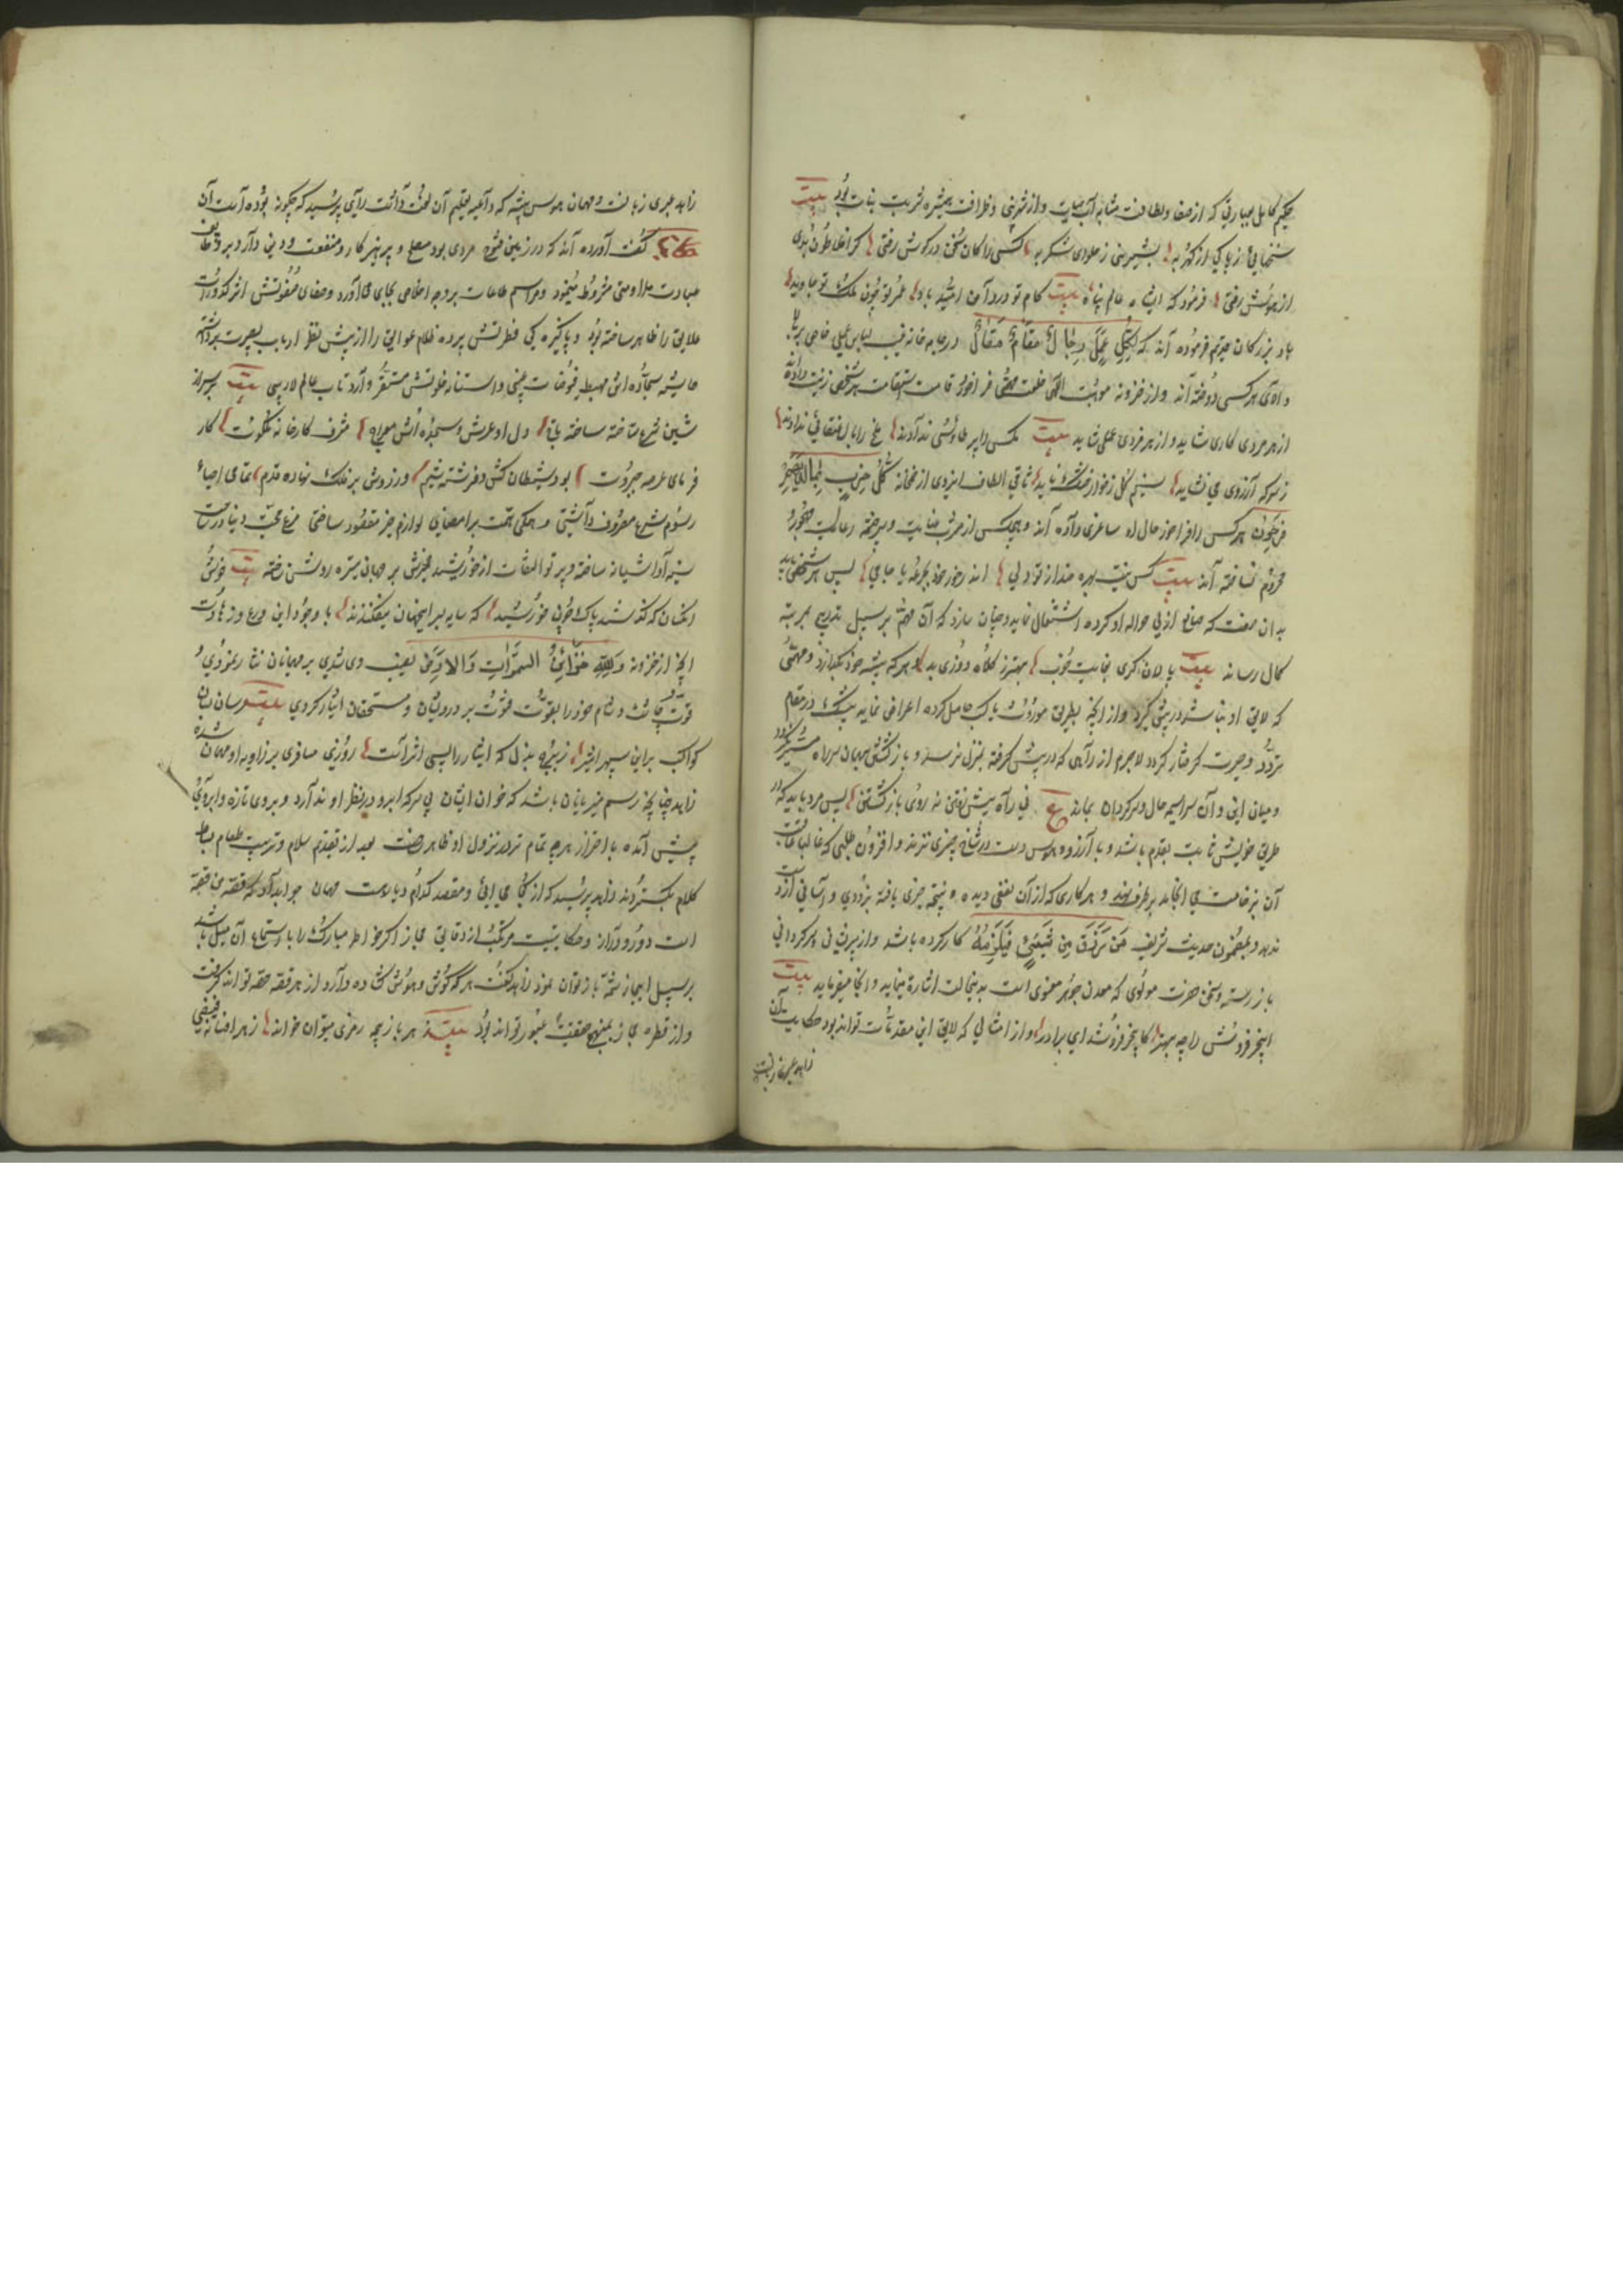 حکیم کامل بعبارتی که از صفا و لطافت مشابه آب حیات و از شیرینی و ظرافت همشیره شربت نبات بود بیت
سخنهایی از پاکی از گهر به بشیرینی ز حلوای شکر به کسی را کان سخن در گوش رفتی گر افلاطون بدی
از هوش رفتی فرمود که ای شاه عالم پناه بیت کام تو درد آمن امید باد عمر تو چون ملک تو جاوید
باد بزرگان محترم فرموده آند که لِکُلِّ عَمَلٍ رِجَالٌ وَلِکُلِّ مَقَامٍ مَقَالٌ در جامه خانه غیب لباس عملی خاص بر بالا
و الای هر کسی دوخته آند و از خزونه موهبت الهی خلعت مهمی فراخور قامت استقامت هر شخصی زینت داده
از هر مردی کاری شاید و از هر فردی عملی شاید بیت مکس را پر طاوسی ندادند مخ را بال عنقایی ندادند
ز سرکه آرزوی می نشاید نسیم گل ز خوار خشک ناید ساقی الطاف ایزدی از خمخانه کُلُّ حِزْبٍ بِمَا لَدَیْهِمْ
فَرِحُونَ هر کس را فراخور حال او ساغری داده آند و هیچکس از مشرب عنایت و سرچشمه رعایت
محروم نساخته آند بیت کس نیست که بهره مند از تو ولی اندر خور خود بجرعه یا جامی پس هر شخصی باید
بدان صنعت که صانع ازلی حواله او کرده اشتغال نماید و چنان سازد که آن مهم بر سبیل تدریج بمرتبه
کمال رساند بیت پالان گری بغایت خوب بهتر ز کلاه دوزی بد و هر که پیشه خود بگذارد و مهمی
که لایق او نباشد در پیش گیرد و از آنچه بطریق موروث یا کسب حاصل کرده اعراض نماید بیشک در مقام
تردد و حیرت گرفتار گردد لاجرم از راهی که در پیش گرفته بمنزل نرسد و بازگشتن بهمان سر راه میسر نگردد
و میان این و آن سراسیمه حال و سرگردان بماند ع نی راه پیش رفتن نه روی بازگشتن پس مرد باید که در
طریق خویش ثابت بقدم باشد و با آرزو و هوس دست در شاخ چیزی نزند و افزون طلبی که غالبا عاقبت
آن بوخامت می انجامد برطرف نهد و هر کاری که از آن نفعی دیده و نتیجه خیری یافته بزودی و آسانی از دست
ندهد و بمضمون حدیث شریف مَنْ رُزِقَ مِنْ شَیْءٍ فَلْیَلْزَمْهُ کار کرده باشد و از پریشانی و سرگردانی
باز رسته و سخن حضرت مولوی که معدن جوهر معنوی است بدینحالت اشارة مینماید و آنجا میفرماید بیت
انجیر فروش را چه بهتر کانجیر فروشد ای برادر و از امثالی که لایق این مقدمات تواند بود حکایت آن
زاهد عبری زبانست
زاهد عبری زبانست و مهمان هوس پیشه که داعیه تعلیم آن لغت داشت رای پرسید که چگونه بوده است آن
حکایت گفت آورده آند که در زمین قنوج مردی بود مصلح و پرهیزکار و متعفف و دین دار و بر وظایف
عبادت مداومتی مشروط مینمود و مراسم طاعات بر وجه اخلاص بجای می آورد و صفای صفوتش اثر کدورات
علایق را ظاهر ساخته بود و پاکیزه گی فطرتش پرده ظلام عوایق را از پیش نظر ارباب بصیرت برداشته
حاشیه سجاده اش مهبط فیوضات غیبی و آستانه خلوتش مستقر واردات عالم لاریبی بیت
شین شرع تاخته ساخته دل او عرش و سجده اش معراج مشرف کارخانه ملکوت کار
فرمای عرصه جبروت بود شیطان کش و فرشته شیم و ز روش بر فلک نهاده قدم تمامی احیاء
رسوم شرع مصروف داشتی و همکی همت بر امضای لوازم خیر مقصود ساختی مرغ محبت دنیا در ساحت
سینه او آشیانه ساخته و پرتو التفات از خورشید بر جهان تیره روشن نه بیت خوش
آنکسان که گذشتند پاک چون خورشید که سایه بر این جهان نیفکندند با وجود این ورع و زهادت
آنچه از خزونه وَلِلَّهِ خَزَائِنُ السَّمَوَاتِ وَالْأَرْضِ نصیب وی شدی بر مهمانان نثار نمودی و
قوت چاشت و شام خود را بقوت فتوت بر درویشان و مستحقان ایثار کردی بیت
کواکب بر این سپهر اثیر ز بهره بذل که ایثار را بسی اثر است روزی مسافری بر زاویه او مهمان شد
زاهد چنانچه رسم میزبانان باشد که خوان ایشان بی سرکه ابرو در نظر او ند آرد و بروی تازه و ابروی
پیش آمده باحتراز هر چه تمام تر در نزول او ظاهر ساخت بعد از تقدیم سلام و ترتیب طعام بساط
کلام بکستردند زاهد پرسید که از کجا می آئی و مقصد کدام دیارست مهمان جواب داد که قصه من قصه
است دور و دراز و حکایتیست مرکب از دقایق مجاز اگر خواطر مبارک را باستماع آن میل باشد
بر سبیل ایجاز شمه باز توان نمود زاهد گفت هر که گوش و هوش گشاده دارد از هر قصه حصه تواند گرفت
و از قطره مجاز بمنهج حقیقت عبور تواند بود بیت ز هر بازیچه رمزی میتوان خواند ز هر افسانه فیضی